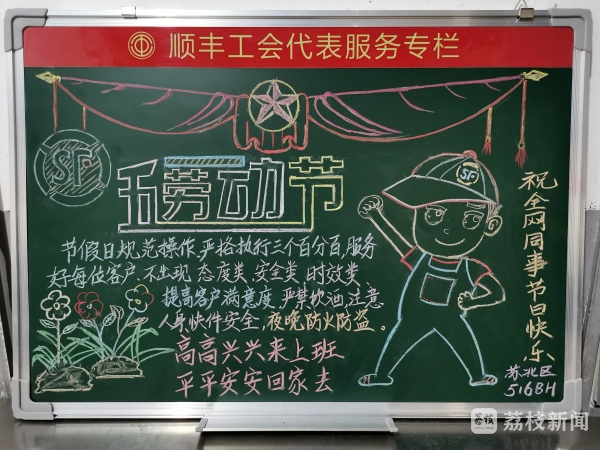 顺丰工会代表服务专栏
SF
五劳动节
SF
节假日规范操作,严格执行三个百分百,服务
好每位客户,不出现态度类、安全类、时效类
提高客户满意度,严禁饮酒,注意
人身快件安全,夜晚防火防盗。
高高兴兴来上班
平平安安回家去
祝全网同事节日快乐
苏北区
516BH
荔枝新闻